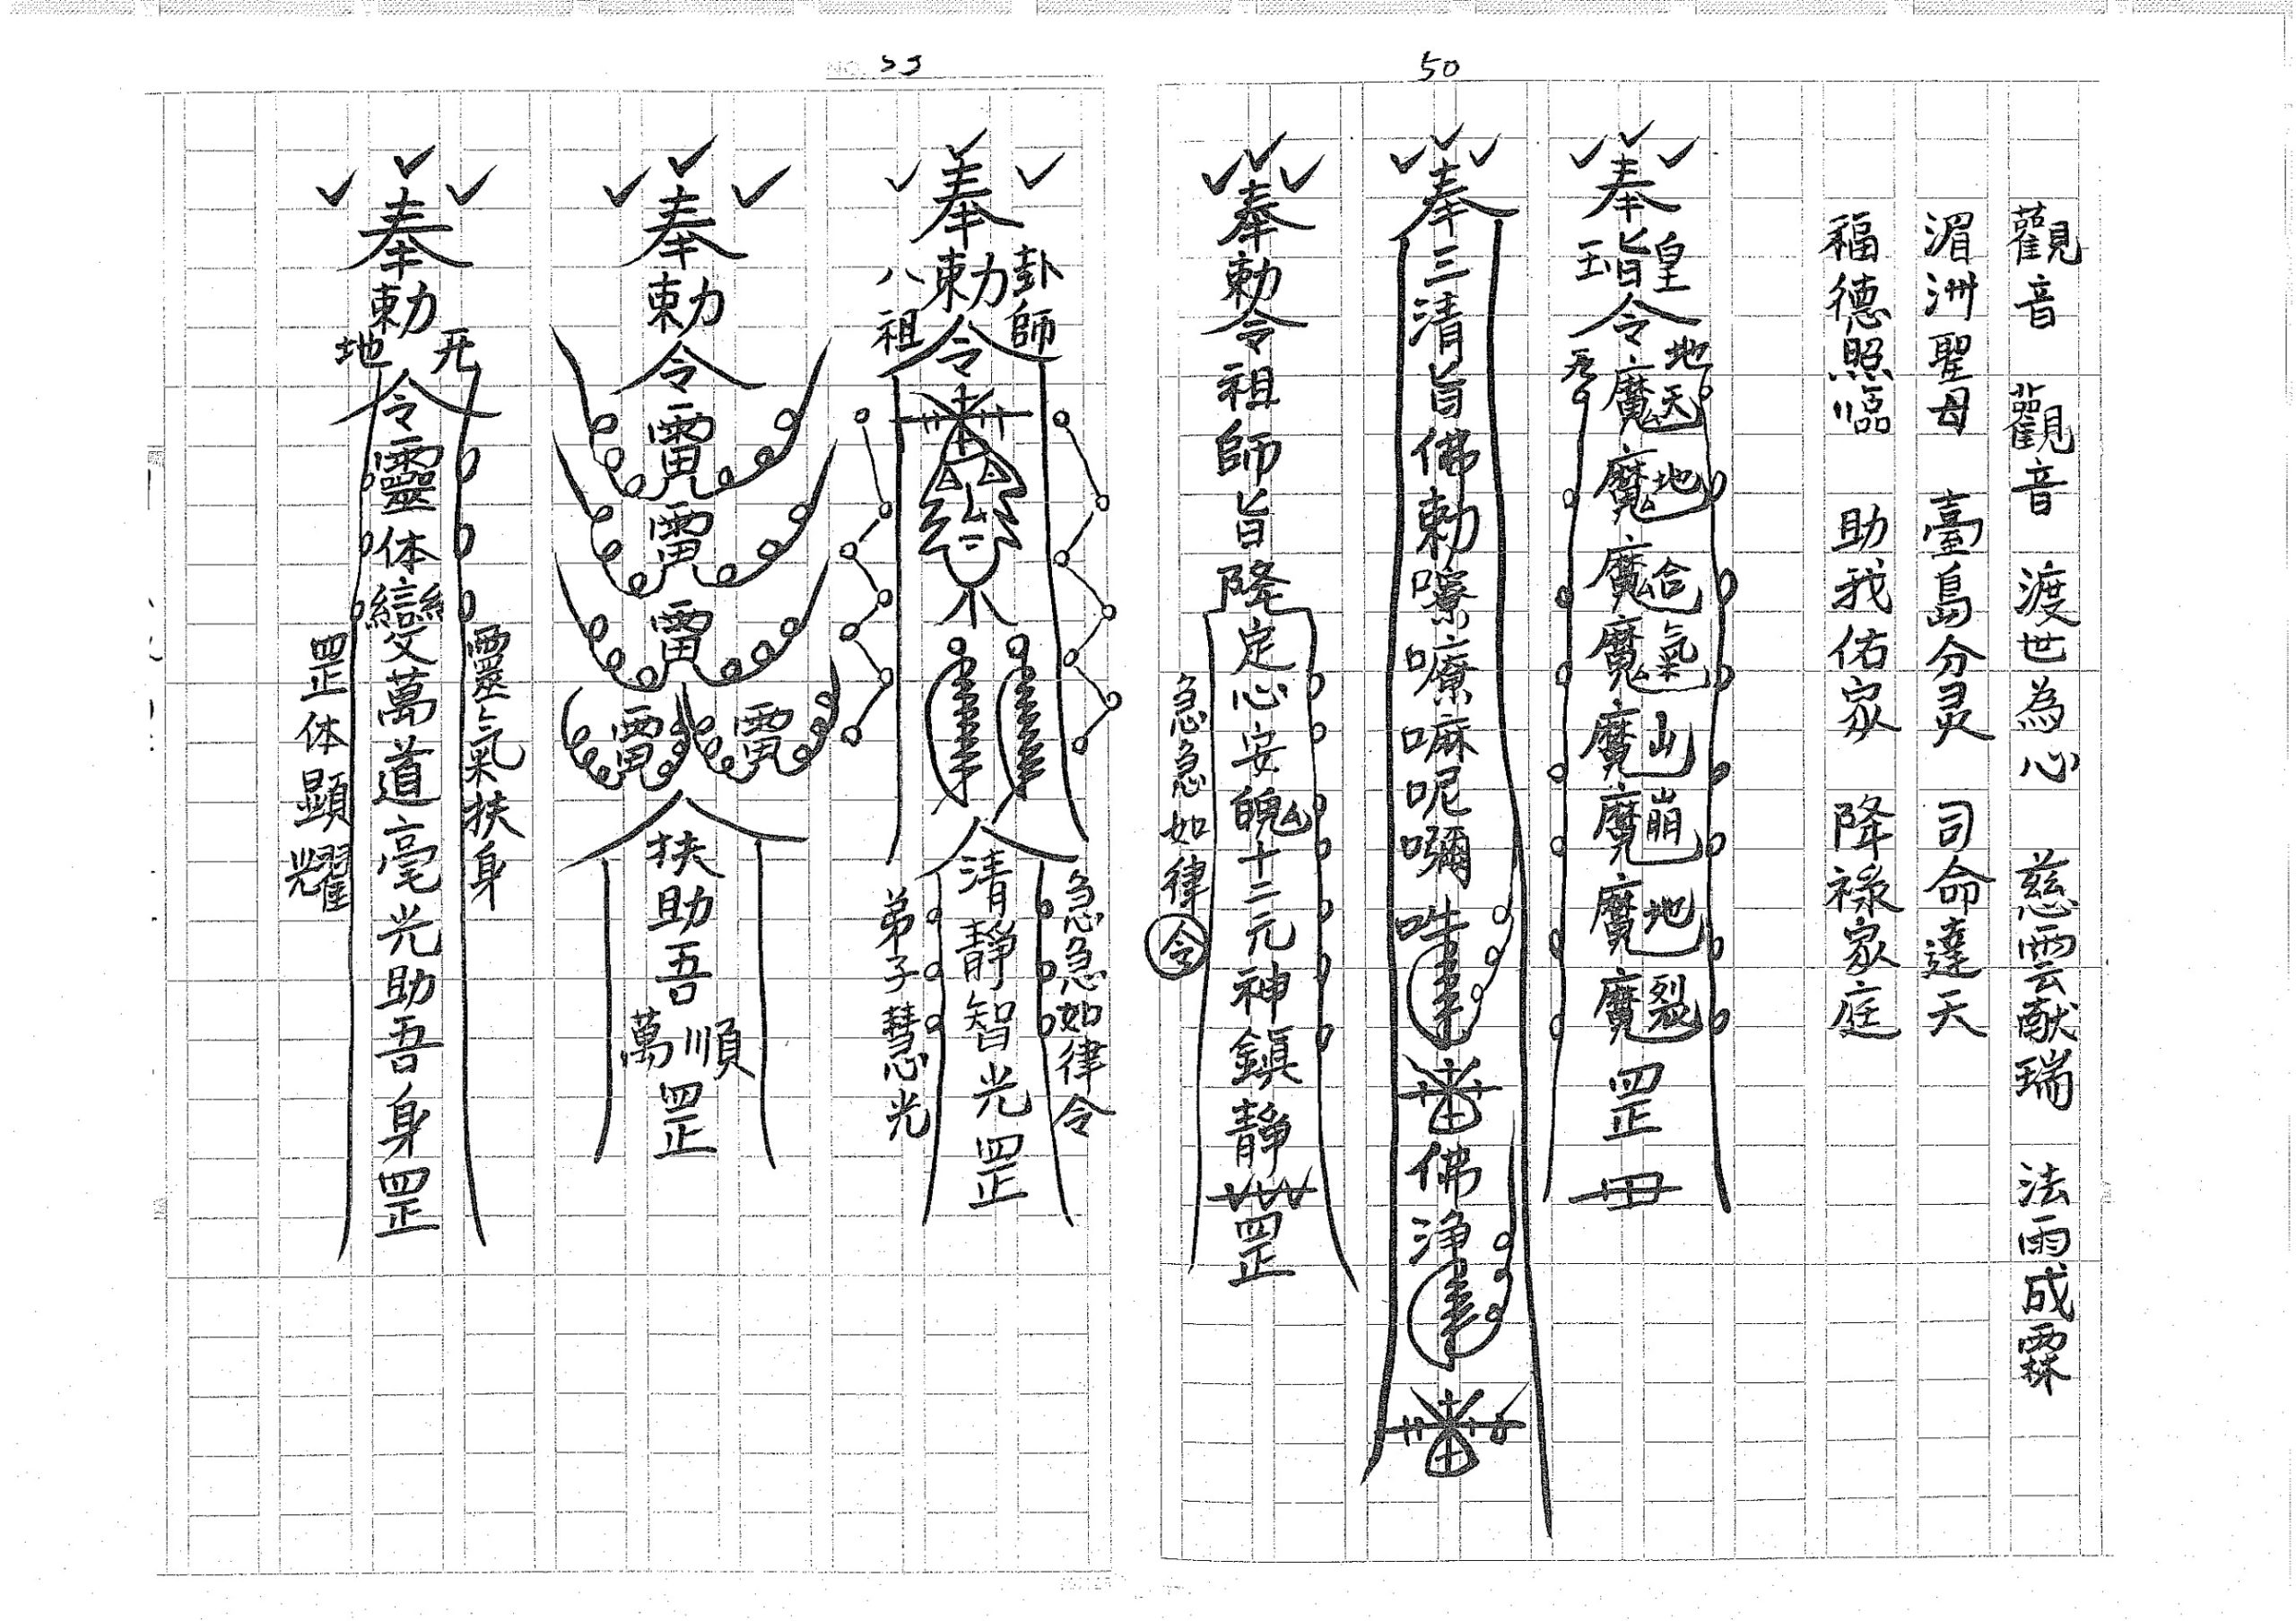 50
觀音 觀音 渡世為心 慈雲献瑞 法雨成霖
湄洲聖母 臺島分灵 司命達天
福德照臨 助我佑家 降祿家庭
奉旨玉皇旨令
地
魔魔魔魔魔魔魔魔罡
天地合氣山崩地裂
奉三清旨佛勅嚓嚓嘛呢嚩
佛浄
奉勅令祖師旨降定心安魄十二元神鎮靜罡
急急如律令
奉勅令
八卦祖師
清靜智光罡
急急如律令
弟子慧光
奉勅令雷雷雷雷雷
扶助吾萬順罡
奉勅令靈体變萬道毫光助吾身罡
天地
靈氣扶身
罡体顯耀